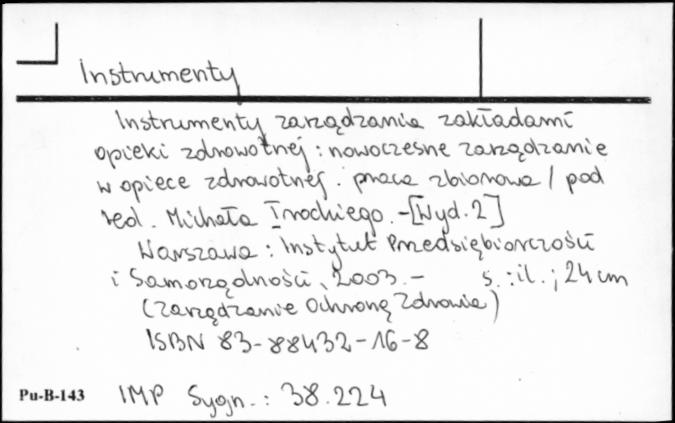 Instrumenty
Instrumenty zarządzania zakładami
opieki zdrowotnej : nowoczesne zarządzanie
w opiece zdrowotnej : praca zbiorowa / pod
red. Michała Trockiego. - [Wyd. 2]
Warszawa : Instytut Przedsiębiorczości
i Samorządności, 2003. - s. : il. ; 24 cm
(Zarządzanie Ochroną Zdrowia)
ISBN 83-88432-16-8
Pu-B-143 IMP Sygn. : 38.224